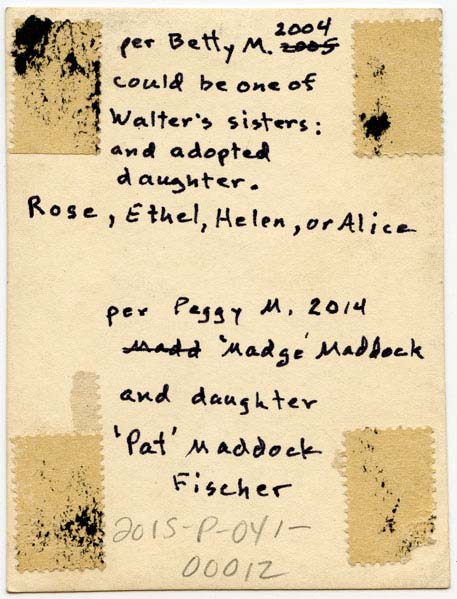 per Betty M. 2004 2005
could be one of
Walter's sisters:
and adopted
daughter.
Rose, Ethel, Helen, or Alice
per Peggy M. 2014
Madd 'Madge' Maddock
and daughter
'Pat' Maddock
Fischer
2015-P-041-
00012